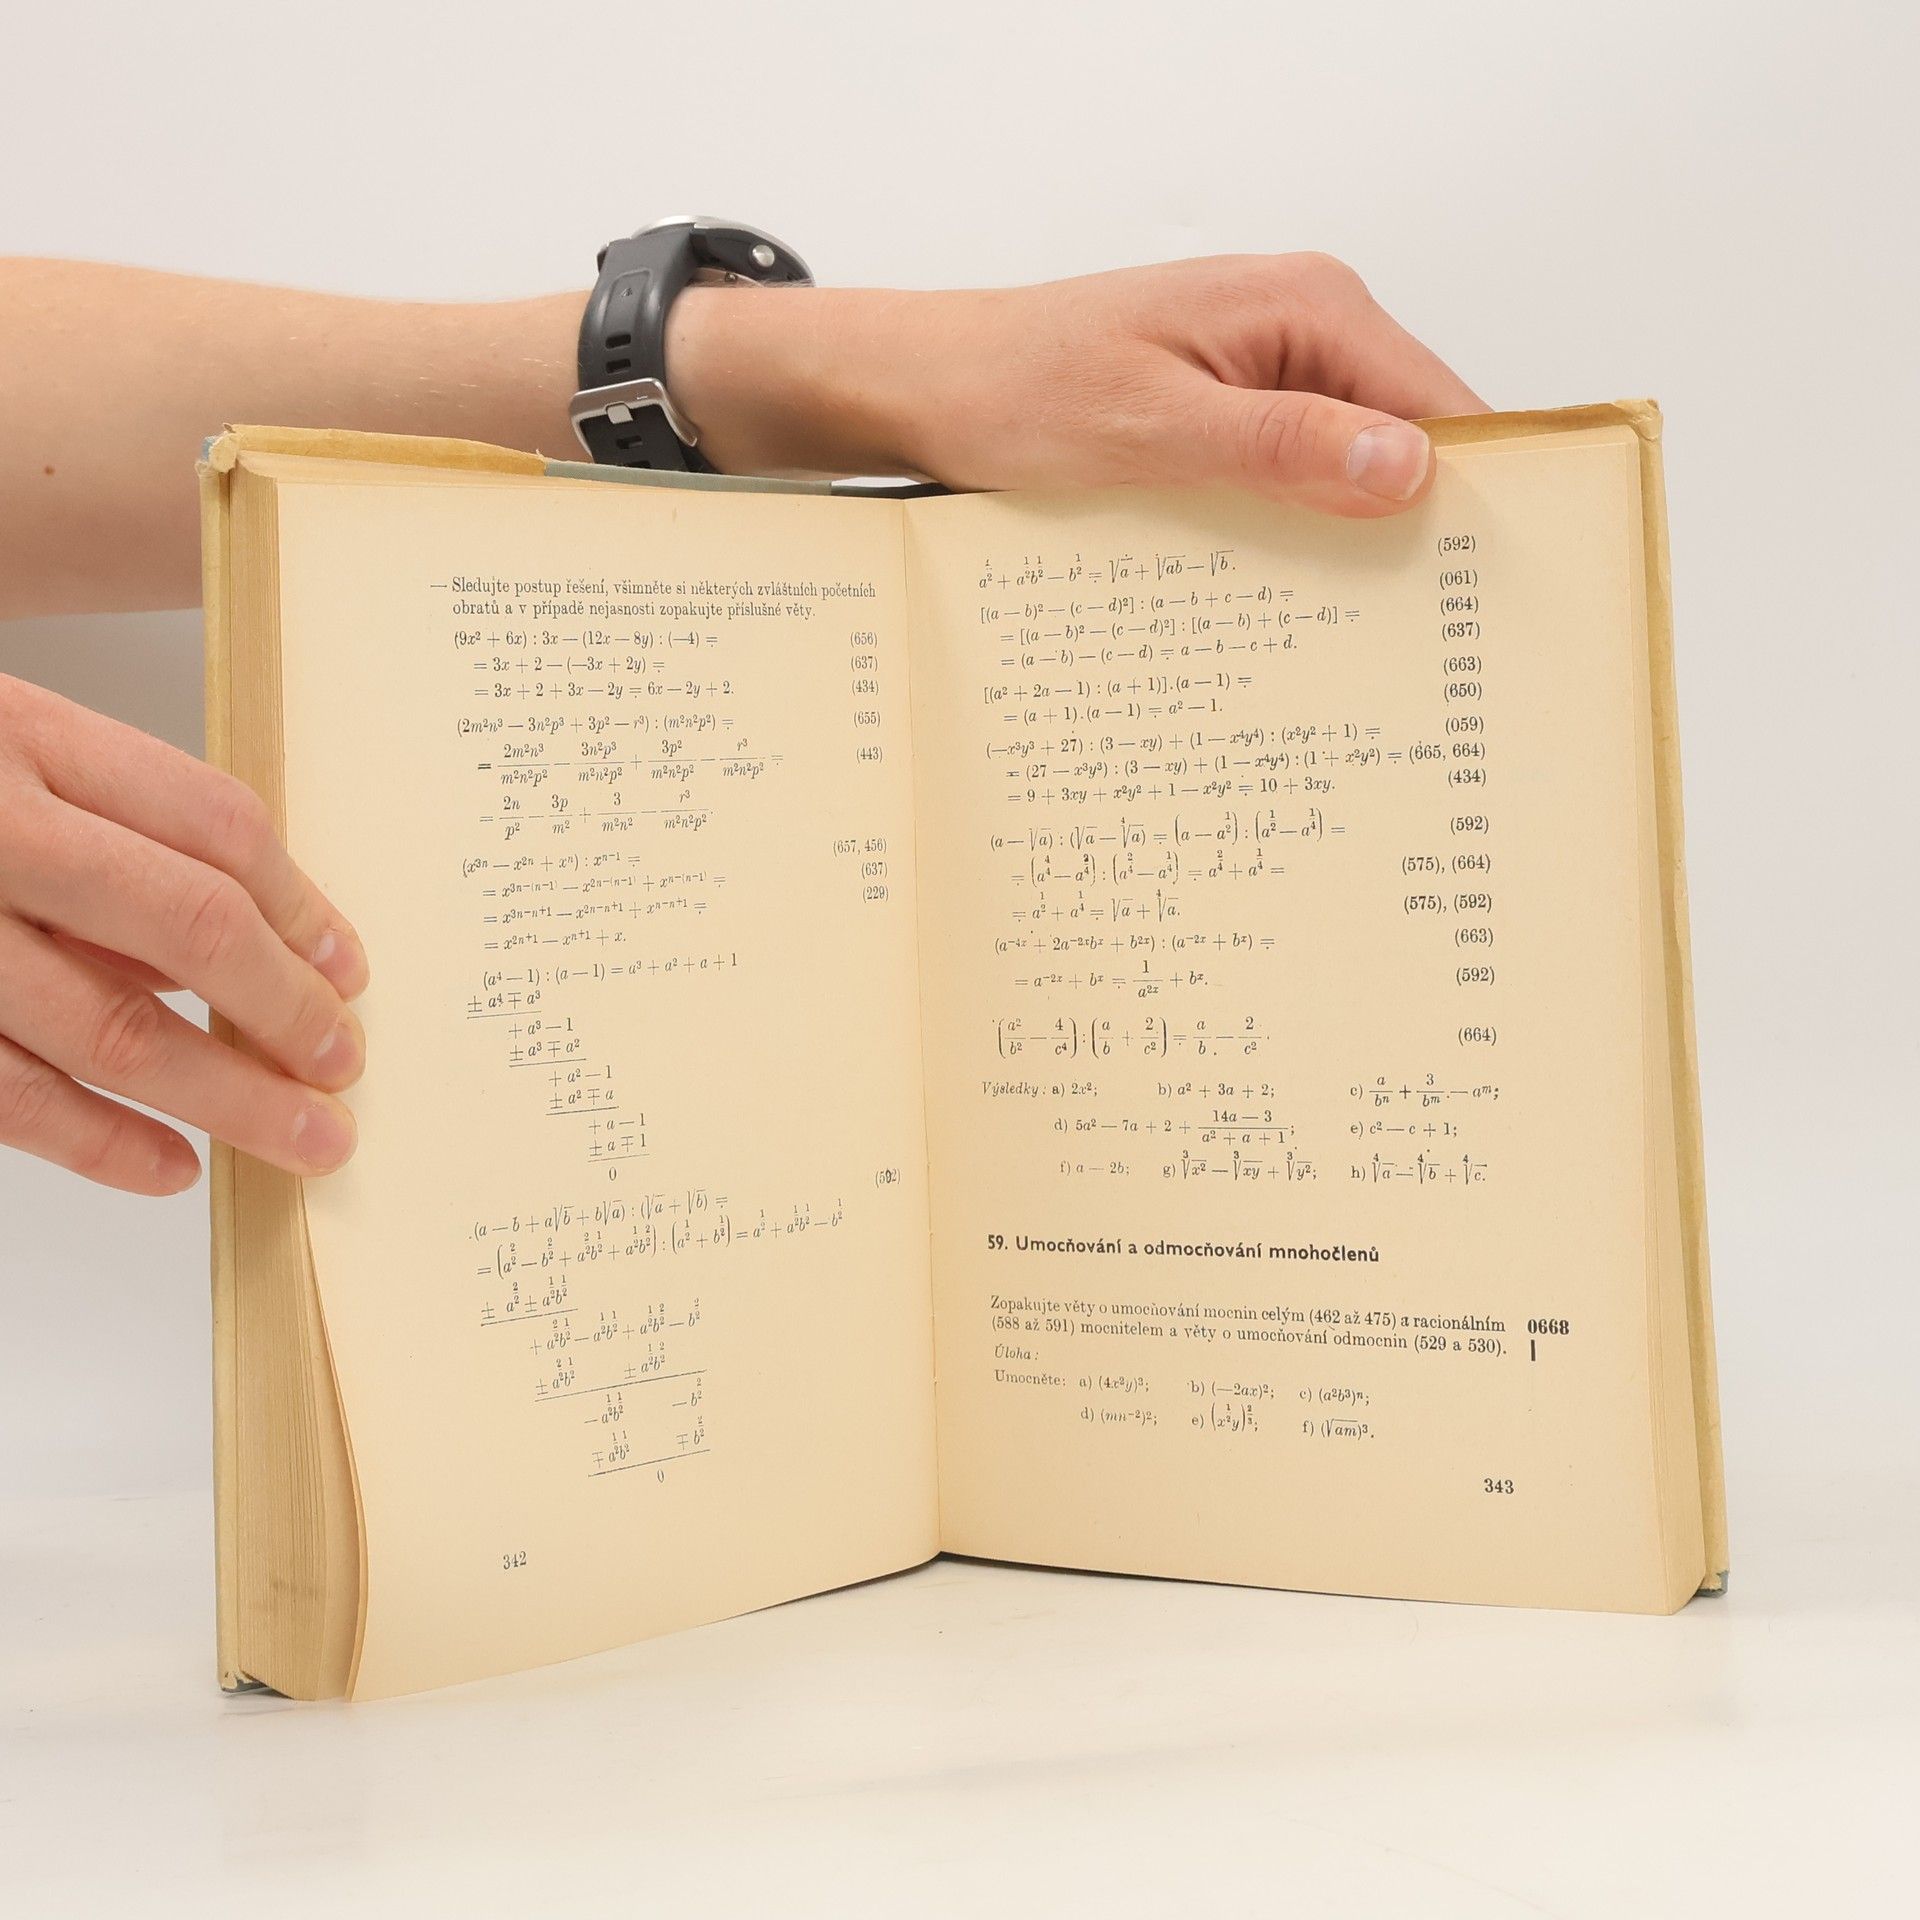 — Sledujte postup řešení, všimněte si některých zvláštních početních
obratů a v případě nejasnosti zopakujte příslušné věty.
(9x² + 6x) : 3x — (12x — 8y) : (—4) = (656)
= 3x + 2 — (—3x + 2y) = (637)
= 3x + 2 + 3x — 2y = 6x — 2y + 2. (434)
(2m²n³ — 3n²p³ + 3p² — r³) : (m²n²p²) = (655)
= 2m²n³/m²n²p² — 3n²p³/m²n²p² + 3p²/m²n²p² — r³/m²n²p² = (443)
= 2n/p² — 3p/m² + 3/m²n² — r³/m²n²p².
(x³ⁿ — x²ⁿ + xⁿ) : xⁿ⁻¹ = (657, 456)
= x³ⁿ⁻⁽ⁿ⁻¹⁾ — x²ⁿ⁻⁽ⁿ⁻¹⁾ + xⁿ⁻⁽ⁿ⁻¹⁾ = (637)
= x³ⁿ⁻ⁿ⁺¹ — x²ⁿ⁻ⁿ⁺¹ + xⁿ⁻ⁿ⁺¹ = (229)
= x²ⁿ⁺¹ — xⁿ⁺¹ + x.
(a⁴ — 1) : (a — 1) = a³ + a² + a + 1
± a⁴ ∓ a³
+ a³ — 1
± a³ ∓ a²
+ a² — 1
± a² ∓ a
+ a — 1
± a ∓ 1
0
(a — b + a√b + b√a) : (√a + √b) =
= (a^(2/2) — b^(2/2) + a^(2/2)b^(1/2) + a^(1/2)b^(2/2)) : (a^(1/2) + b^(1/2)) = a^(1/2) + a^(1/2)b^(1/2) — b^(1/2)
± a^(2/2) ± a^(1/2)b^(1/2)
+ a^(2/2)b^(1/2) — a^(1/2)b^(1/2) + a^(1/2)b^(2/2) — b^(2/2)
± a^(2/2)b^(1/2) ± a^(1/2)b^(2/2)
— a^(1/2)b^(1/2) — b^(2/2)
∓ a^(1/2)b^(1/2) ∓ b^(2/2)
0
342
a^(1/2) + a^(1/2)b^(1/2) — b^(1/2) = √a + √ab — √b. (592)
[(a — b)² — (c — d)²] : (a — b + c — d) = (061)
= [(a — b)² — (c — d)²] : [(a — b) + (c — d)] = (664)
= (a — b) — (c — d) = a — b — c + d. (637)
[(a² + 2a — 1) : (a + 1)].(a — 1) = (663)
= (a + 1).(a — 1) = a² — 1. (650)
(—x³y³ + 27) : (3 — xy) + (1 — x⁴y⁴) : (x²y² + 1) = (059)
= (27 — x³y³) : (3 — xy) + (1 — x⁴y⁴) : (1 + x²y²) = (665, 664)
= 9 + 3xy + x²y² + 1 — x²y² = 10 + 3xy. (434)
(a — √a) : (√a — ⁴√a) = (a — a^(1/2)) : (a^(1/2) — a^(1/4)) = (592)
= (a^(4/4) — a^(2/4)) : (a^(2/4) — a^(1/4)) = a^(2/4) + a^(1/4) = (575), (664)
= a^(1/2) + a^(1/4) = √a + ⁴√a. (575), (592)
(a⁻⁴ˣ + 2a⁻²ˣbˣ + b²ˣ) : (a⁻²ˣ + bˣ) = (663)
= a⁻²ˣ + bˣ = 1/a²ˣ + bˣ. (592)
(a²/b² — 4/c⁴) : (a/b + 2/c²) = a/b — 2/c². (664)
Výsledky: a) 2x²; b) a² + 3a + 2; c) a/bⁿ + 3/bᵐ — aᵐ;
d) 5a² — 7a + 2 + (14a — 3)/(a² + a + 1); e) c² — c + 1;
f) a — 2b; g) ³√x² — ³√xy + ³√y²; h) ⁴√a — ⁴√b + ⁴√c.
59. Umocňování a odmocňování mnohočlenů
Zopakujte věty o umocňování mocnin celým (462 až 475) a racionálním 0668
(588 až 591) mocnitelem a věty o umocňování odmocnin (529 a 530).
Úloha:
Umocněte: a) (4x²y)³; b) (—2ax)²; c) (a²b³)ⁿ;
d) (mn⁻²)²; e) (x^(1/2)y)^(2/3); f) (√am)³.
343